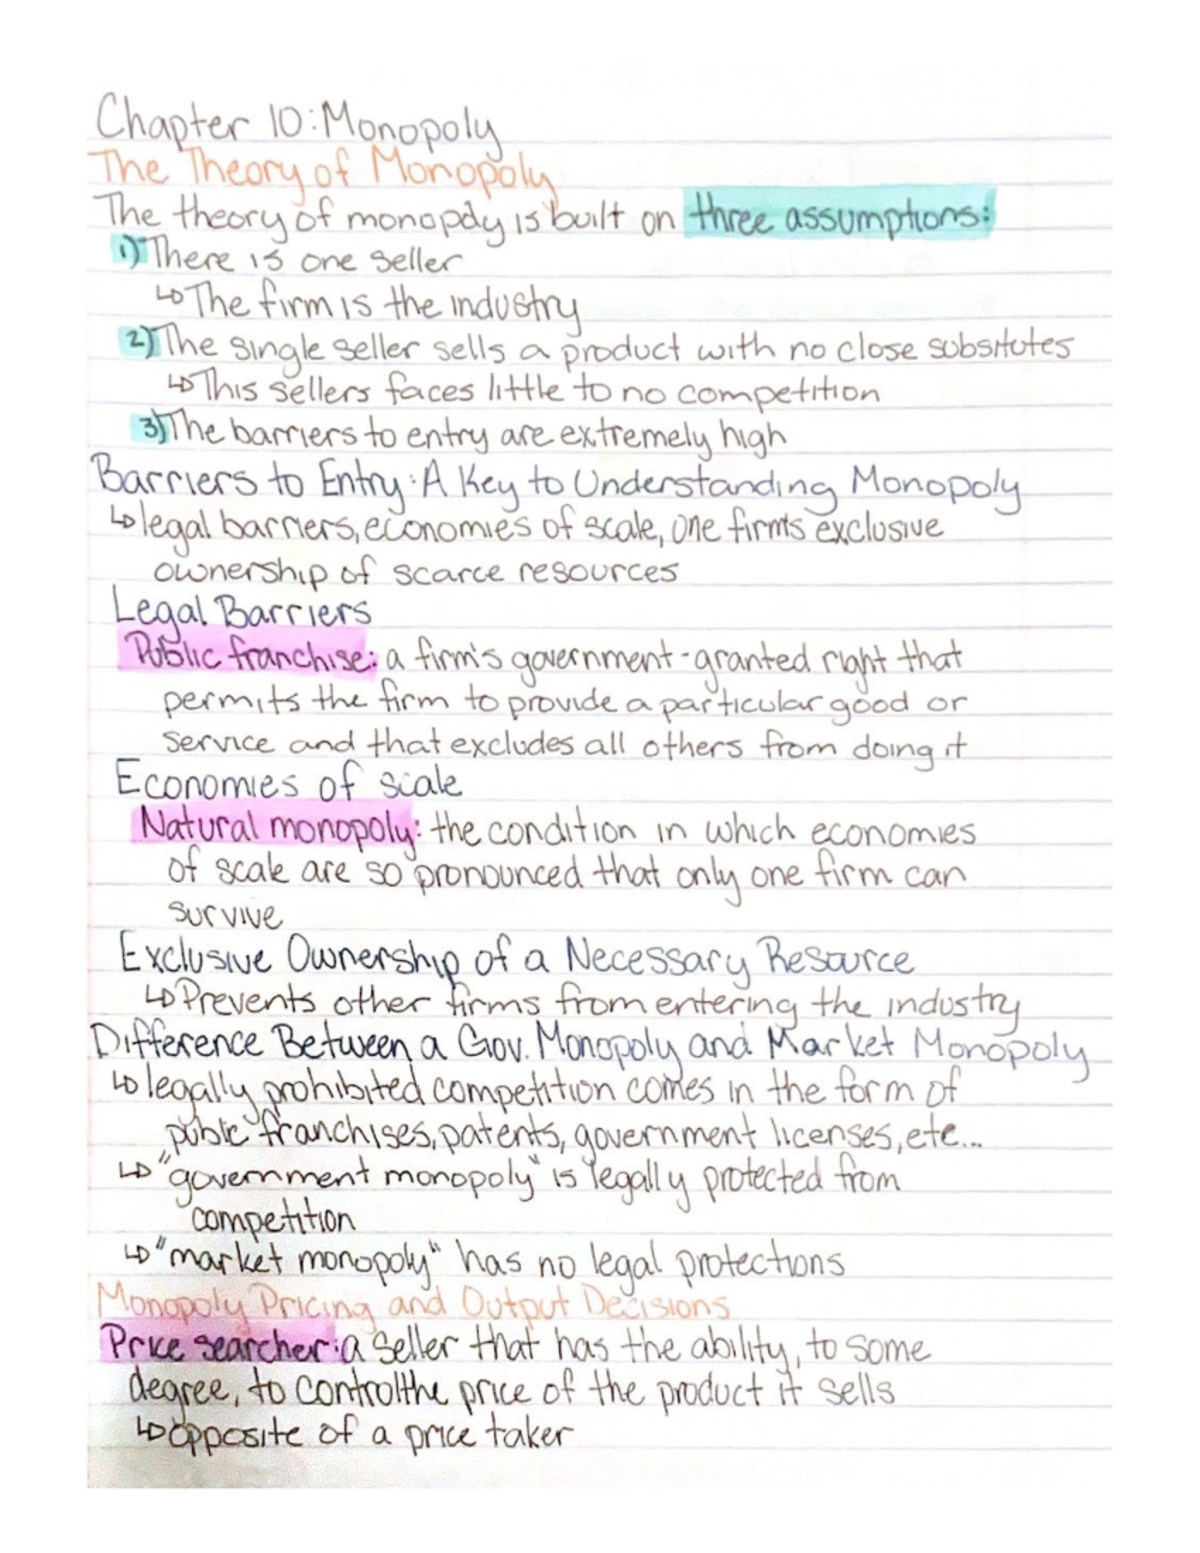 Chapter 10: Monopoly
The Theory of Monopoly
The theory of monopoly is built on three assumptions:
1) There is one seller
↳ The firm is the industry
2) The single seller sells a product with no close subsitutes
↳ This sellers faces little to no competition
3) The barriers to entry are extremely high
Barriers to Entry: A Key to Understanding Monopoly
↳ legal barriers, economies of scale, one firm's exclusive
ownership of scarce resources
Legal Barriers
Public franchise: a firm's government-granted right that
permits the firm to provide a particular good or
service and that excludes all others from doing it
Economies of scale
Natural monopoly: the condition in which economies
of scale are so pronounced that only one firm can
survive
Exclusive Ownership of a Necessary Resource
↳ Prevents other firms from entering the industry
Difference Between a Gov. Monopoly and Market Monopoly
↳ legally prohibited competition comes in the form of
public franchises, patents, government licenses, etc...
↳ "government monopoly" is legally protected from
competition
↳ "market monopoly" has no legal protections
Monopoly Pricing and Output Decisions
Price searcher: a seller that has the ability, to some
degree, to control the price of the product it sells
↳ opposite of a price taker